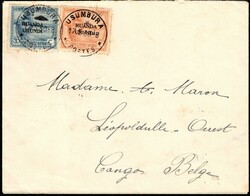 USUMBURA
RUANDA
URUNDI
USUMBURA
RUANDA
URUNDI
POSTES
Madame At Maron
Léopoldville - Ouest
Congo Belge